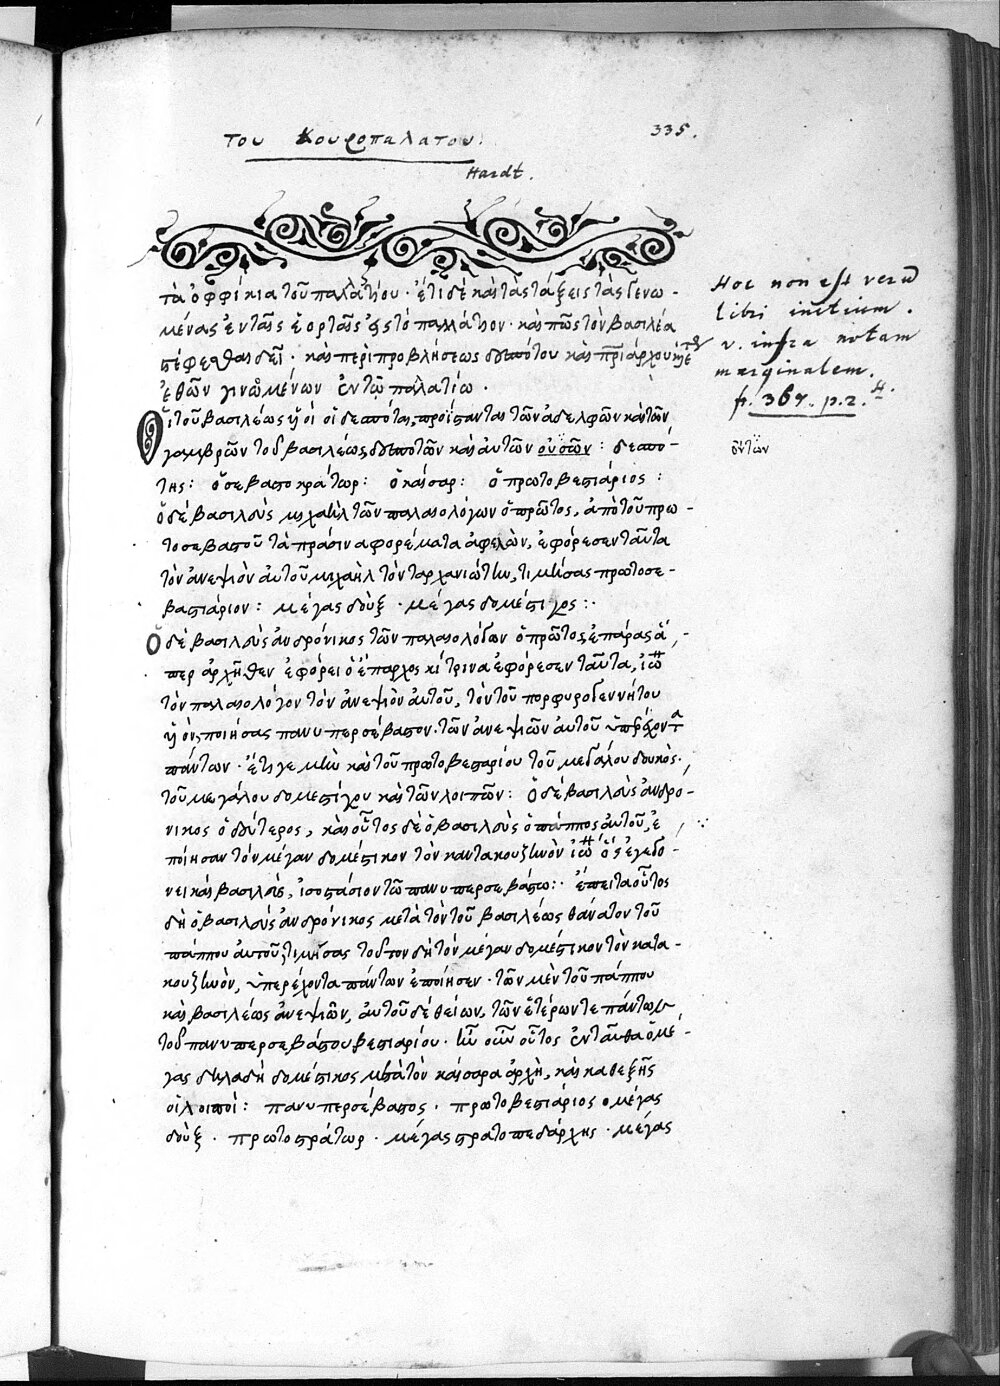 του Κουροπαλατου.
335.
Hardt.
τὰ ὀφφίκια τοῦ παλατίου· ἔτι δὲ καὶ τὰς τάξεις τὰς γενω-
μένας ἐν ταῖς ἑορταῖς εἰς τὸ παλλάτιον· καὶ πῶς τὸν βασιλέα
στέφεσθαι δεῖ· καὶ περὶ προβλήσεως δεσπότου καὶ πριάρχου
ἐθῶν γινομένων ἐν τῷ παλατίω.
Οἱ τοῦ βασιλέως ὑϊοὶ οἱ δεσπόται, προΐστανται τῶν ἀδελφῶν καὶ τῶν
γαμβρῶν τοῦ βασιλέως, δεσποτῶν καὶ αὐτῶν οὐσῶν: δεσπό-
της: ὁ σεβαστοκράτωρ: ὁ καίσαρ: ὁ πρωτοβεστιάριος:
ὁ δὲ βασιλεὺς μιχαὴλ τῶν παλαιολόγων ὁ πρῶτος, ἀπὸ τοῦ πρω-
τοσεβαστοῦ τὰ πράσινα φορέματα ἀφελὼν, ἐφόρεσεν ταῦτα
τὸν ἀνεψιὸν αὐτοῦ μιχαὴλ τὸν ταρχανιώτην, τιμήσας πρωτοσε-
βαστιάριον: μέγας δοὺξ· μέγας δομέστικος:·
Ὁ δὲ βασιλεὺς ἀνδρόνικος τῶν παλαιολόγων ὁ πρῶτος, ἐπάρας ἅ-
περ ἀρχῆθεν ἐφόρει ὁ ἔπαρχος κίτρινα ἐφόρεσεν ταῦτα, ἰω
τὸν παλαιολόγον τὸν ἀνεψιὸν αὐτοῦ, τὸν τοῦ πορφυρογεννήτου
ὑϊὸν, ποιήσας πανυπερσέβαστον· τῶν ἀνεψιῶν αὐτοῦ ὑπερέχοντα
πάντων· ἔτι γε μὴν καὶ τοῦ πρωτοβεστιαρίου τοῦ μεγάλου δουκὸς·
τοῦ μεγάλου δομεστίκου καὶ τῶν λοιπῶν: Ὁ δὲ βασιλεὺς ἀνδρο-
νικος ὁ δεύτερος, καὶ οὗτος δὲ ὁ βασιλεὺς ὁ πάππος αὐτοῦ, ἐ
ποίησαν τὸν μέγαν δομέστικον τὸν καντακουζηνὸν ἰω ὃς ἐγεγό-
νει καὶ βασιλεὺς, ἰσοστάσιον τῶ πανυπερσεβάστω:· ἔπειτα οὗτος
δὴ ὁ βασιλεὺς ἀνδρόνικος μετὰ τὸν τοῦ βασιλέως θάνατον τοῦ
πάππου αὐτοῦ, τιμήσας τοῦτον δὴ τὸν μέγαν δομέστικον τὸν κατα-
κουζηνὸν, ὑπερέχοντα πάντων ἐποίησεν· τῶν μὲν τοῦ πάππου
καὶ βασιλέως ἀνεψιῶν, αὐτοῦ δὲ θείων, τῶν ἑτέρων τε πάντων
τοῦ πανυπερσεβάστου βεστιαρίου· ἦν οὖν οὗτος ἐνταῦθα ὁ μέ-
γας δηλαδὴ δομέστικος μετὰ τὸν καίσαρα ἀρχὴ, καὶ καθεξῆς
οἱ λοιποί: πανυπερσέβαστος· πρωτοβεστιάριος ὁ μέγας
δοὺξ· πρωτοστράτωρ· μέγας στρατοπεδάρχης· μέγας
Hoc non est veru
libri initium.
v. infra notam
marginalem.
p. 367. p. 2. H.
ὄντων